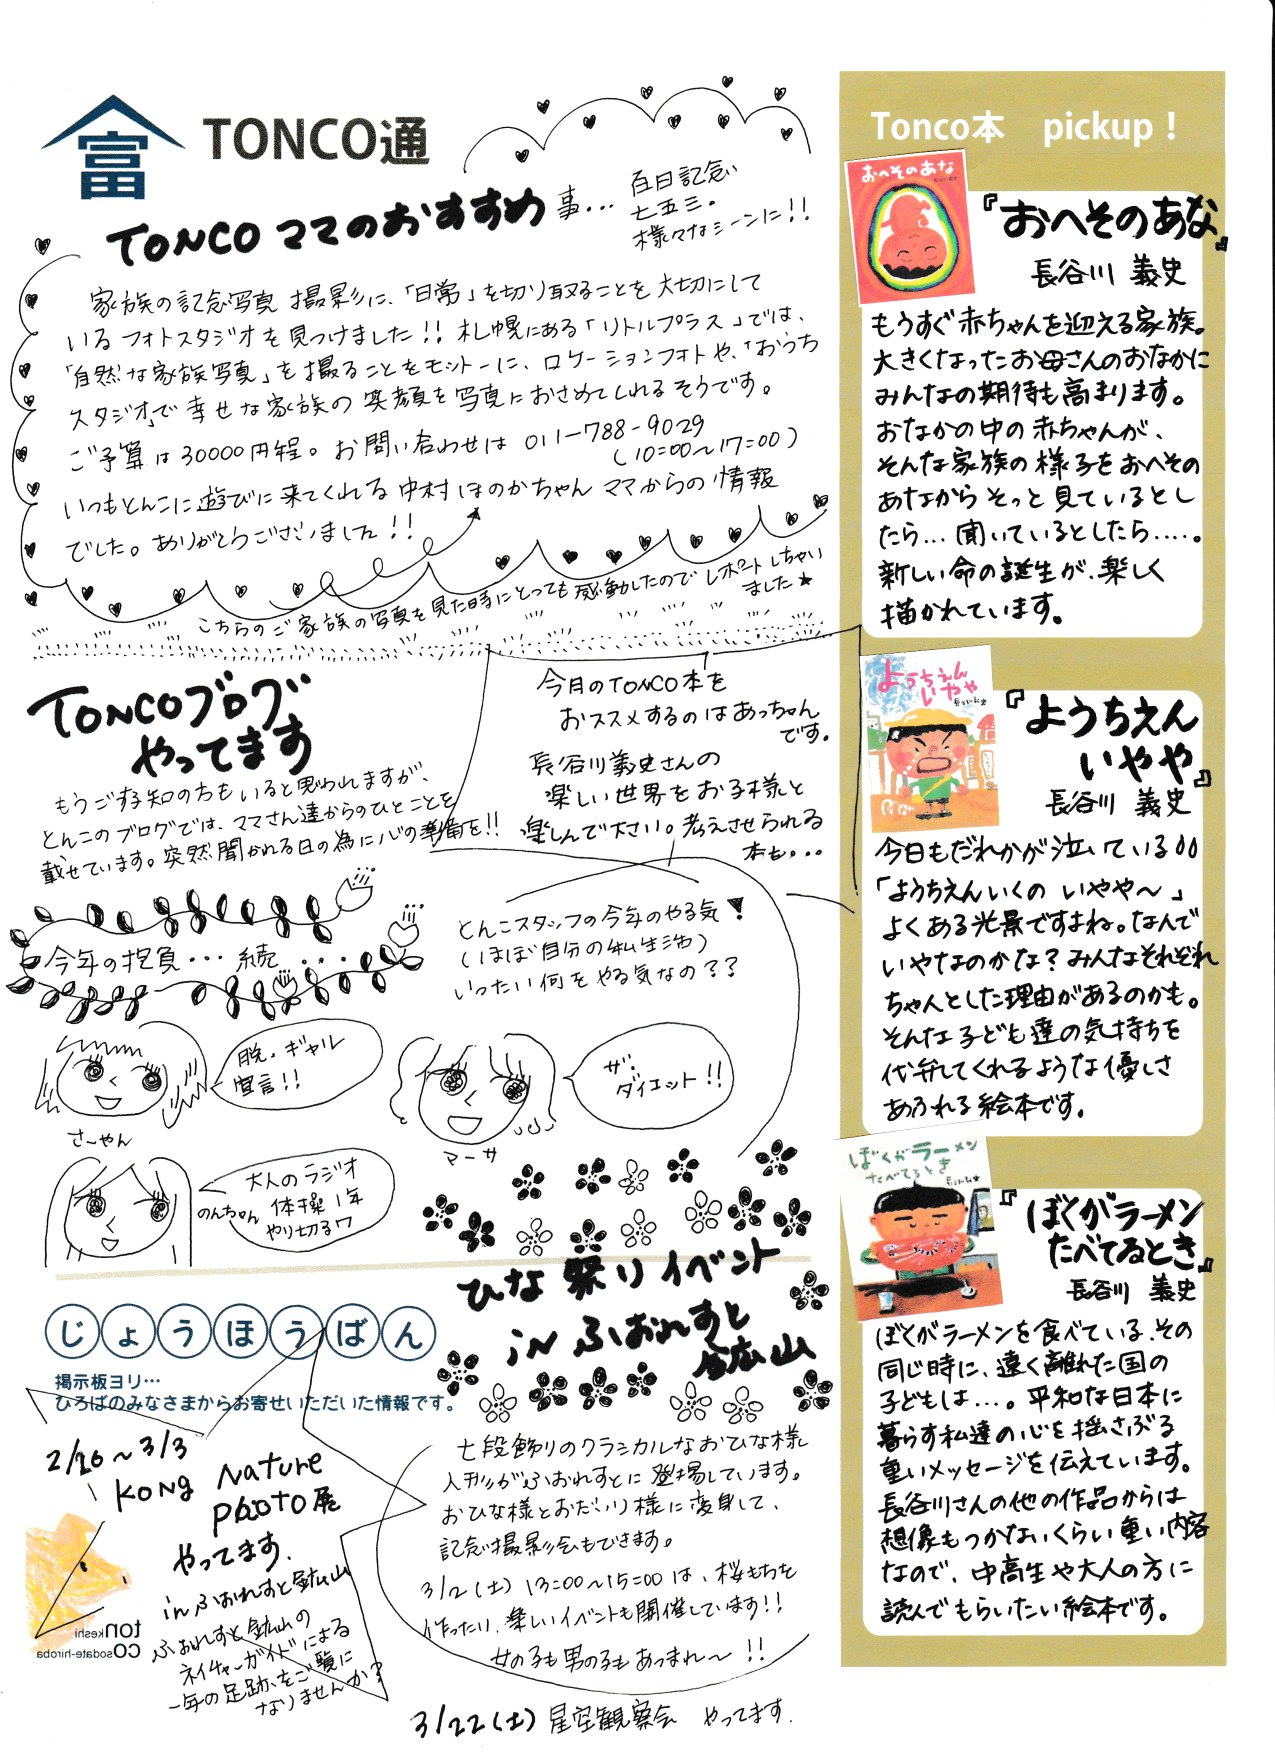 富 TONCO通
TONCO ママのおすすめ事…
百日記念
七五三。
様々なシーンに!!
家族の記念写真撮影に、「日常」を切り取ることを大切にして
いるフォトスタジオを見つけました!! 札幌にある「リトルプラス」では、
「自然な家族写真」を撮ることをモットーに、ロケーションフォトや、「おうち
スタジオ」で幸せな家族の笑顔を写真におさめてくれるそうです。
ご予算は30000円程。お問い合わせは 011-788-9029
(10:00～17:00)
いつもとんこに遊びに来てくれる中村ほのかちゃんママからの情報
でした。ありがとうございました!!
こちらのご家族の写真を見た時にとっても感動したのでレポートしちゃい
ました★
TONCOブログ
やってます
もうご存知の方もいると思われますが、
とんこのブログでは、ママさん達からのひとことを
載せています。突然聞かれる日の為に心の準備を!!
今月のTONCO本を
おススメするのはあっちゃん
です。
長谷川義史さんの
楽しい世界をお子様と
楽しんで下さい。考えさせられる
本も...
今年の抱負・・・続・・・
とんこスタッフの今年のやる気!
(ほぼ自分の私生活)
いったい何をやる気なの??
脱・ギャル
宣言!!
さーやん
ザ・
ダイエット!!
マーサ
大人のラジオ
体操1年
やり切るワ
のんちゃん
ひな祭りイベント
in ふぉれすと
鉱山
七段飾りのクラシカルなおひな様
人形がふぉれすとに登場しています。
おひな様とおだいり様に変身して、
記念撮影会もできます。
3/2(土) 13:00～15:00は、桜もちを
作ったり、楽しいイベントも開催しています!!
女の子も男の子もあつまれ～!!
3/22(土) 星空観察会 やってます.
じょうほうばん
掲示板ヨリ…
ひろばのみなさまからお寄せいただいた情報です。
2/26～3/3
KONG Nature
PHOTO展
やってます.
in ふぉれすと鉱山
ふぉれすと鉱山の
ネイチャーガイドによる
一年の足跡をご覧に
なりませんか?
tonkeshi
cosodate-hiroba
Tonco本 pickup!
おへそのあな
『おへそのあな』
長谷川 義史
もうすぐ赤ちゃんを迎える家族。
大きくなったお母さんのおなかに
みんなの期待も高まります。
おなかの中の赤ちゃんが、
そんな家族の様子をおへその
あなからそっと見ているとし
たら… 聞いているとしたら……。
新しい命の誕生が、楽しく
描かれています。
ようちえん
いやや
『ようちえん
いやや』
長谷川 義史
今日もだれかが泣いている。。
「ようちえんいくの いやや～」
よくある光景ですよね。なんで
いやなのかな? みんなそれぞれ
ちゃんとした理由があるのかも。
そんな子ども達の気持ちを
代弁してくれるような優しさ
あふれる絵本です。
ぼくがラーメン
たべてるとき
『ぼくがラーメン
たべてるとき』
長谷川 義史
ぼくがラーメンを食べている、その
同じ時に、遠く離れた国の
子どもは…。平和な日本に
暮らす私達の心を揺さぶる
重いメッセージを伝えています。
長谷川さんの他の作品からは
想像もつかないくらい重い内容
なので、中高生や大人の方に
読んでもらいたい絵本です。